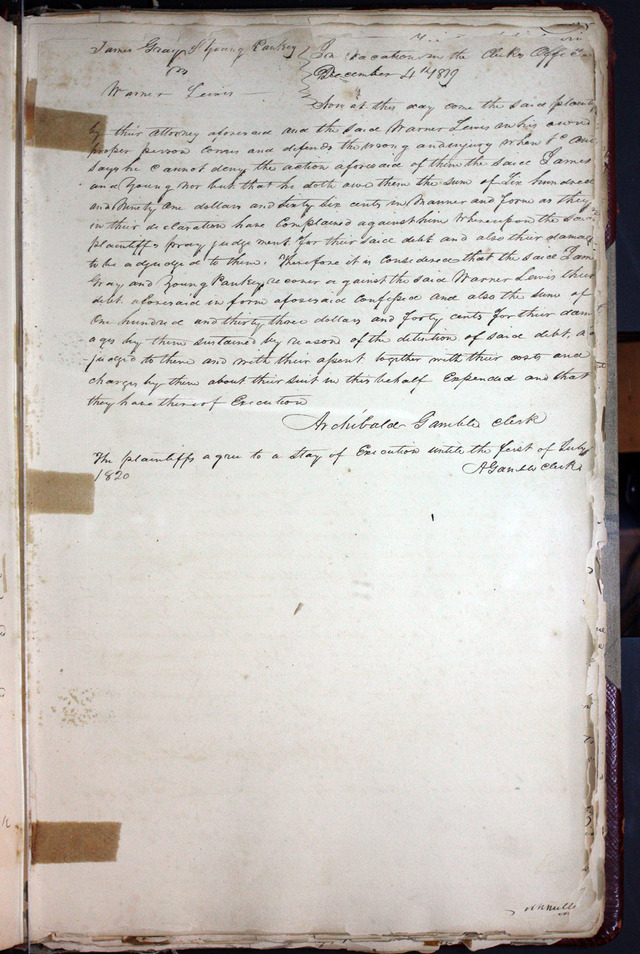 James Gray & Young Pankey
vs
Warner Lewis
In vacation in the Clerks Office
December 4th 1819
Now at this day come the said plainti
by their Attorney aforesaid and the said Warner Lewis in his own
proper person comes and defends the wrong and injury when &c and
says he cannot deny the action aforesaid of them the said James
and Young nor but that he doth owe them the sum of Six hundred
and Ninety One dollars and Sixty six cents in Manner and form as they
in their declaration have Complained against him Whereupon the said
plaintiffs pray judgement for their said debt and also their damag
to be adjudged to them. Therefore it is considered that the said Jam
Gray and Young Pankey recover against the said Warner Lewis their
debt aforesaid in form aforesaid confessed and also the sum of
One hundred and thirty three dollars and forty cents for their dam
ages by them sustained by reason of the detention of said debt, ad
judged to them and with their assent together with their costs and
charges by them about their suit in this behalf Expended and that
they have thereof Execution
Archibald Gamble clerk
The plaintiffs agree to a Stay of Execution untill the first of July
1820
A Gamble clerk